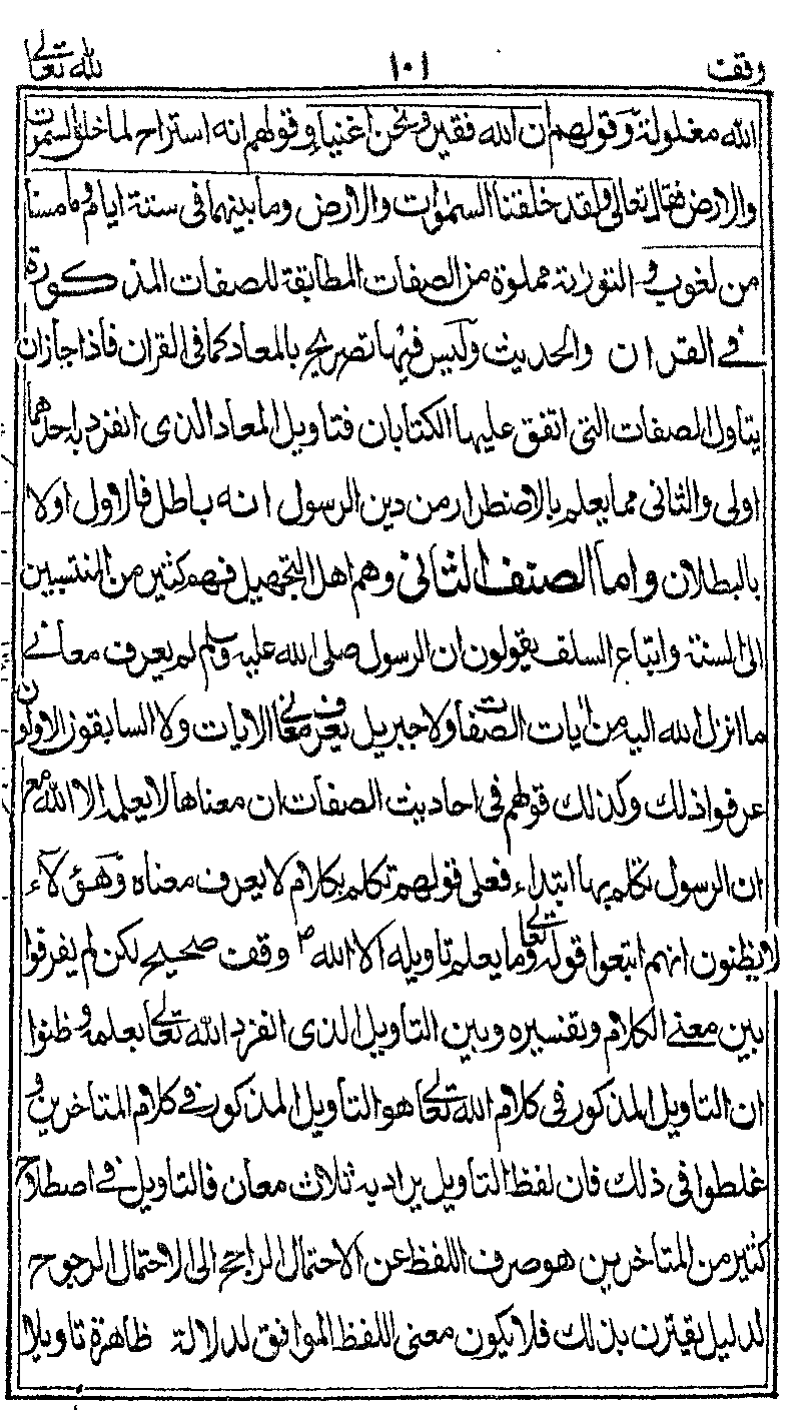 وقف ١٠١ لله تعالى
الله مغلولة وقولهم ان الله فقير ونحن اغنياء وقولهم انه استراح لما خلق السموات
والارض فقال تعالى ولقد خلقنا السموات والارض وما بينهما فى ستة ايام وما مسنا
من لغوب والتورية مملوة من الصفات المطابقة للصفات المذكورة
فى القران والحديث وليس فيها تصريح بالمعاد كما فى القران فاذا جاز ان
يتاول الصفات التى اتفق عليها الكتابان فتاويل المعاد الذى انفرد به احدهما
اولى والثانى مما يعلم بالاضطرار من دين الرسول انه باطل فالاول اولا
بالبطلان واما الصنف الثانى وهم اهل التجهيل فهم كثير من المنتسبين
الى السنة واتباع السلف يقولون ان الرسول صلى الله عليه وسلم لم يعرف معانى
ما انزل الله اليه من ايات الصفات ولا جبريل يعرف معانى الايات ولا السابقون الاولون
عرفوا ذلك وكذلك قولهم فى احاديث الصفات ان معناها لا يعلمه الا الله مع
ان الرسول تكلم بها ابتداء فعلى قولهم تكلم بكلام لا يعرف معناه وهؤلاء
يظنون انهم اتبعوا قوله تعالى وما يعلم تاويله الا الله وقف صحيح لكن لم يفرقوا
بين معنى الكلام وتفسيره وبين التاويل الذى انفرد الله تعالى بعلمه وظنوا
ان التاويل المذكور فى كلام الله تعالى هو التاويل المذكور فى كلام المتاخرين و
غلطوا فى ذلك فان لفظ التاويل يراد به ثلاث معان فالتاويل فى اصطلاح
كثير من المتاخرين هو صرف اللفظ عن الاحتمال الراجح الى الاحتمال المرجوح
لدليل يقترن بذلك فلا يكون معنى اللفظ الموافق لدلالة ظاهرة تاويلا